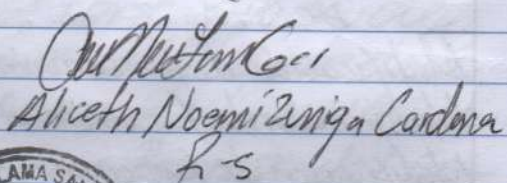 Aliceth Noemi Zuniga Cardona
R-S
AMA SA